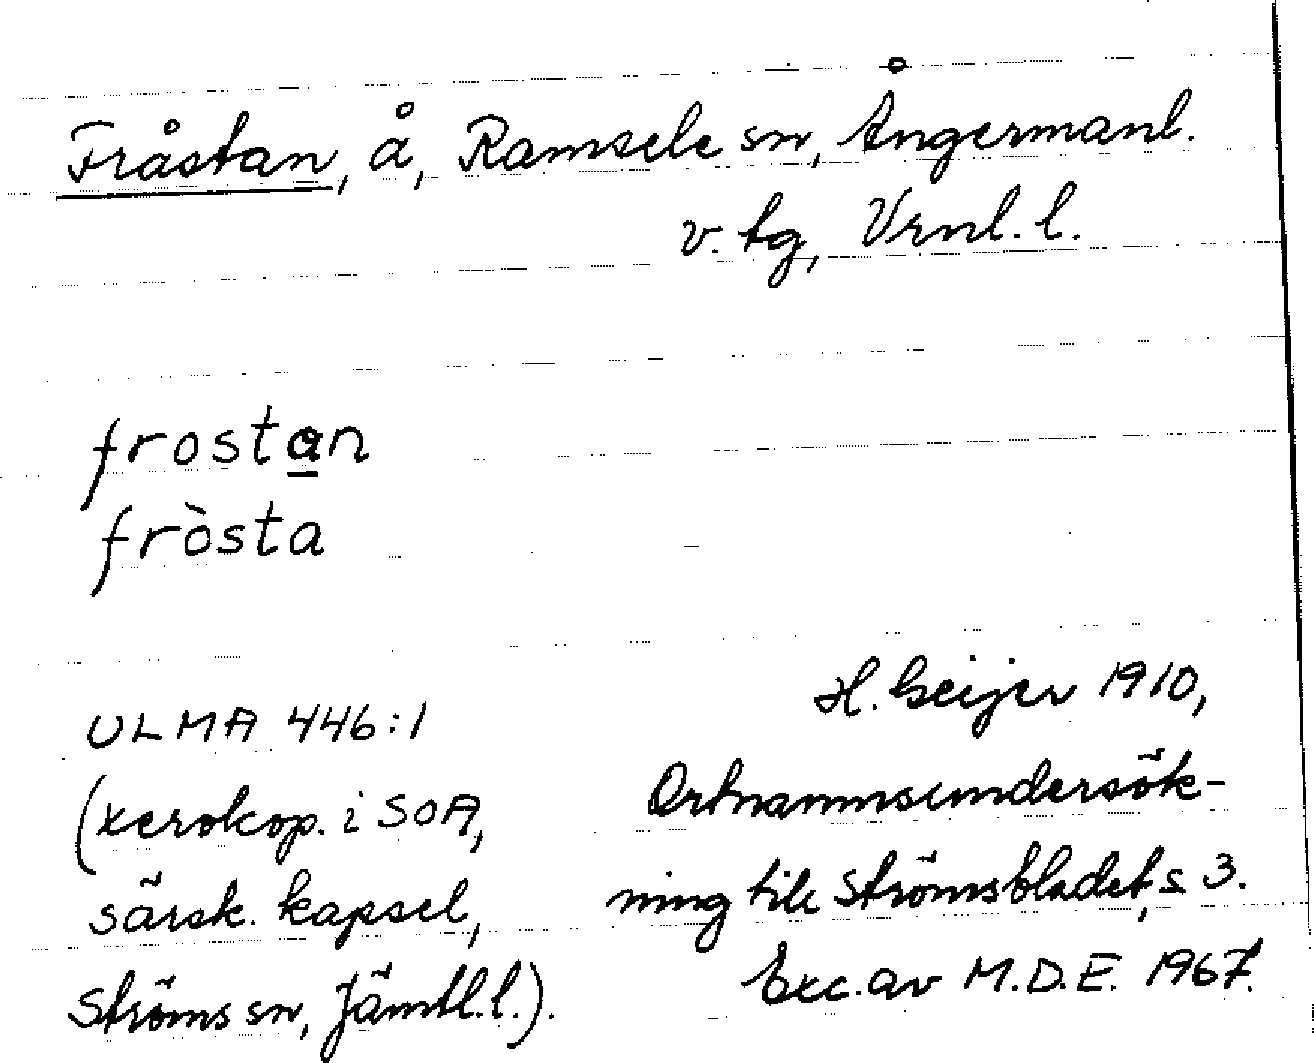 Fråstan, å, Ramsele sn, Ångermanl.
v. tg, Vrnl. l.
frostan
fròsta
ULMA 446:1
(xerokop. i SOA,
särsk. kapsel,
Ströms sn, Jämtl.l.).
H. Geijer 1910,
Ortnamnsundersök-
ning till Strömsbladet, s 3.
Exc. av M.D.E. 1967.